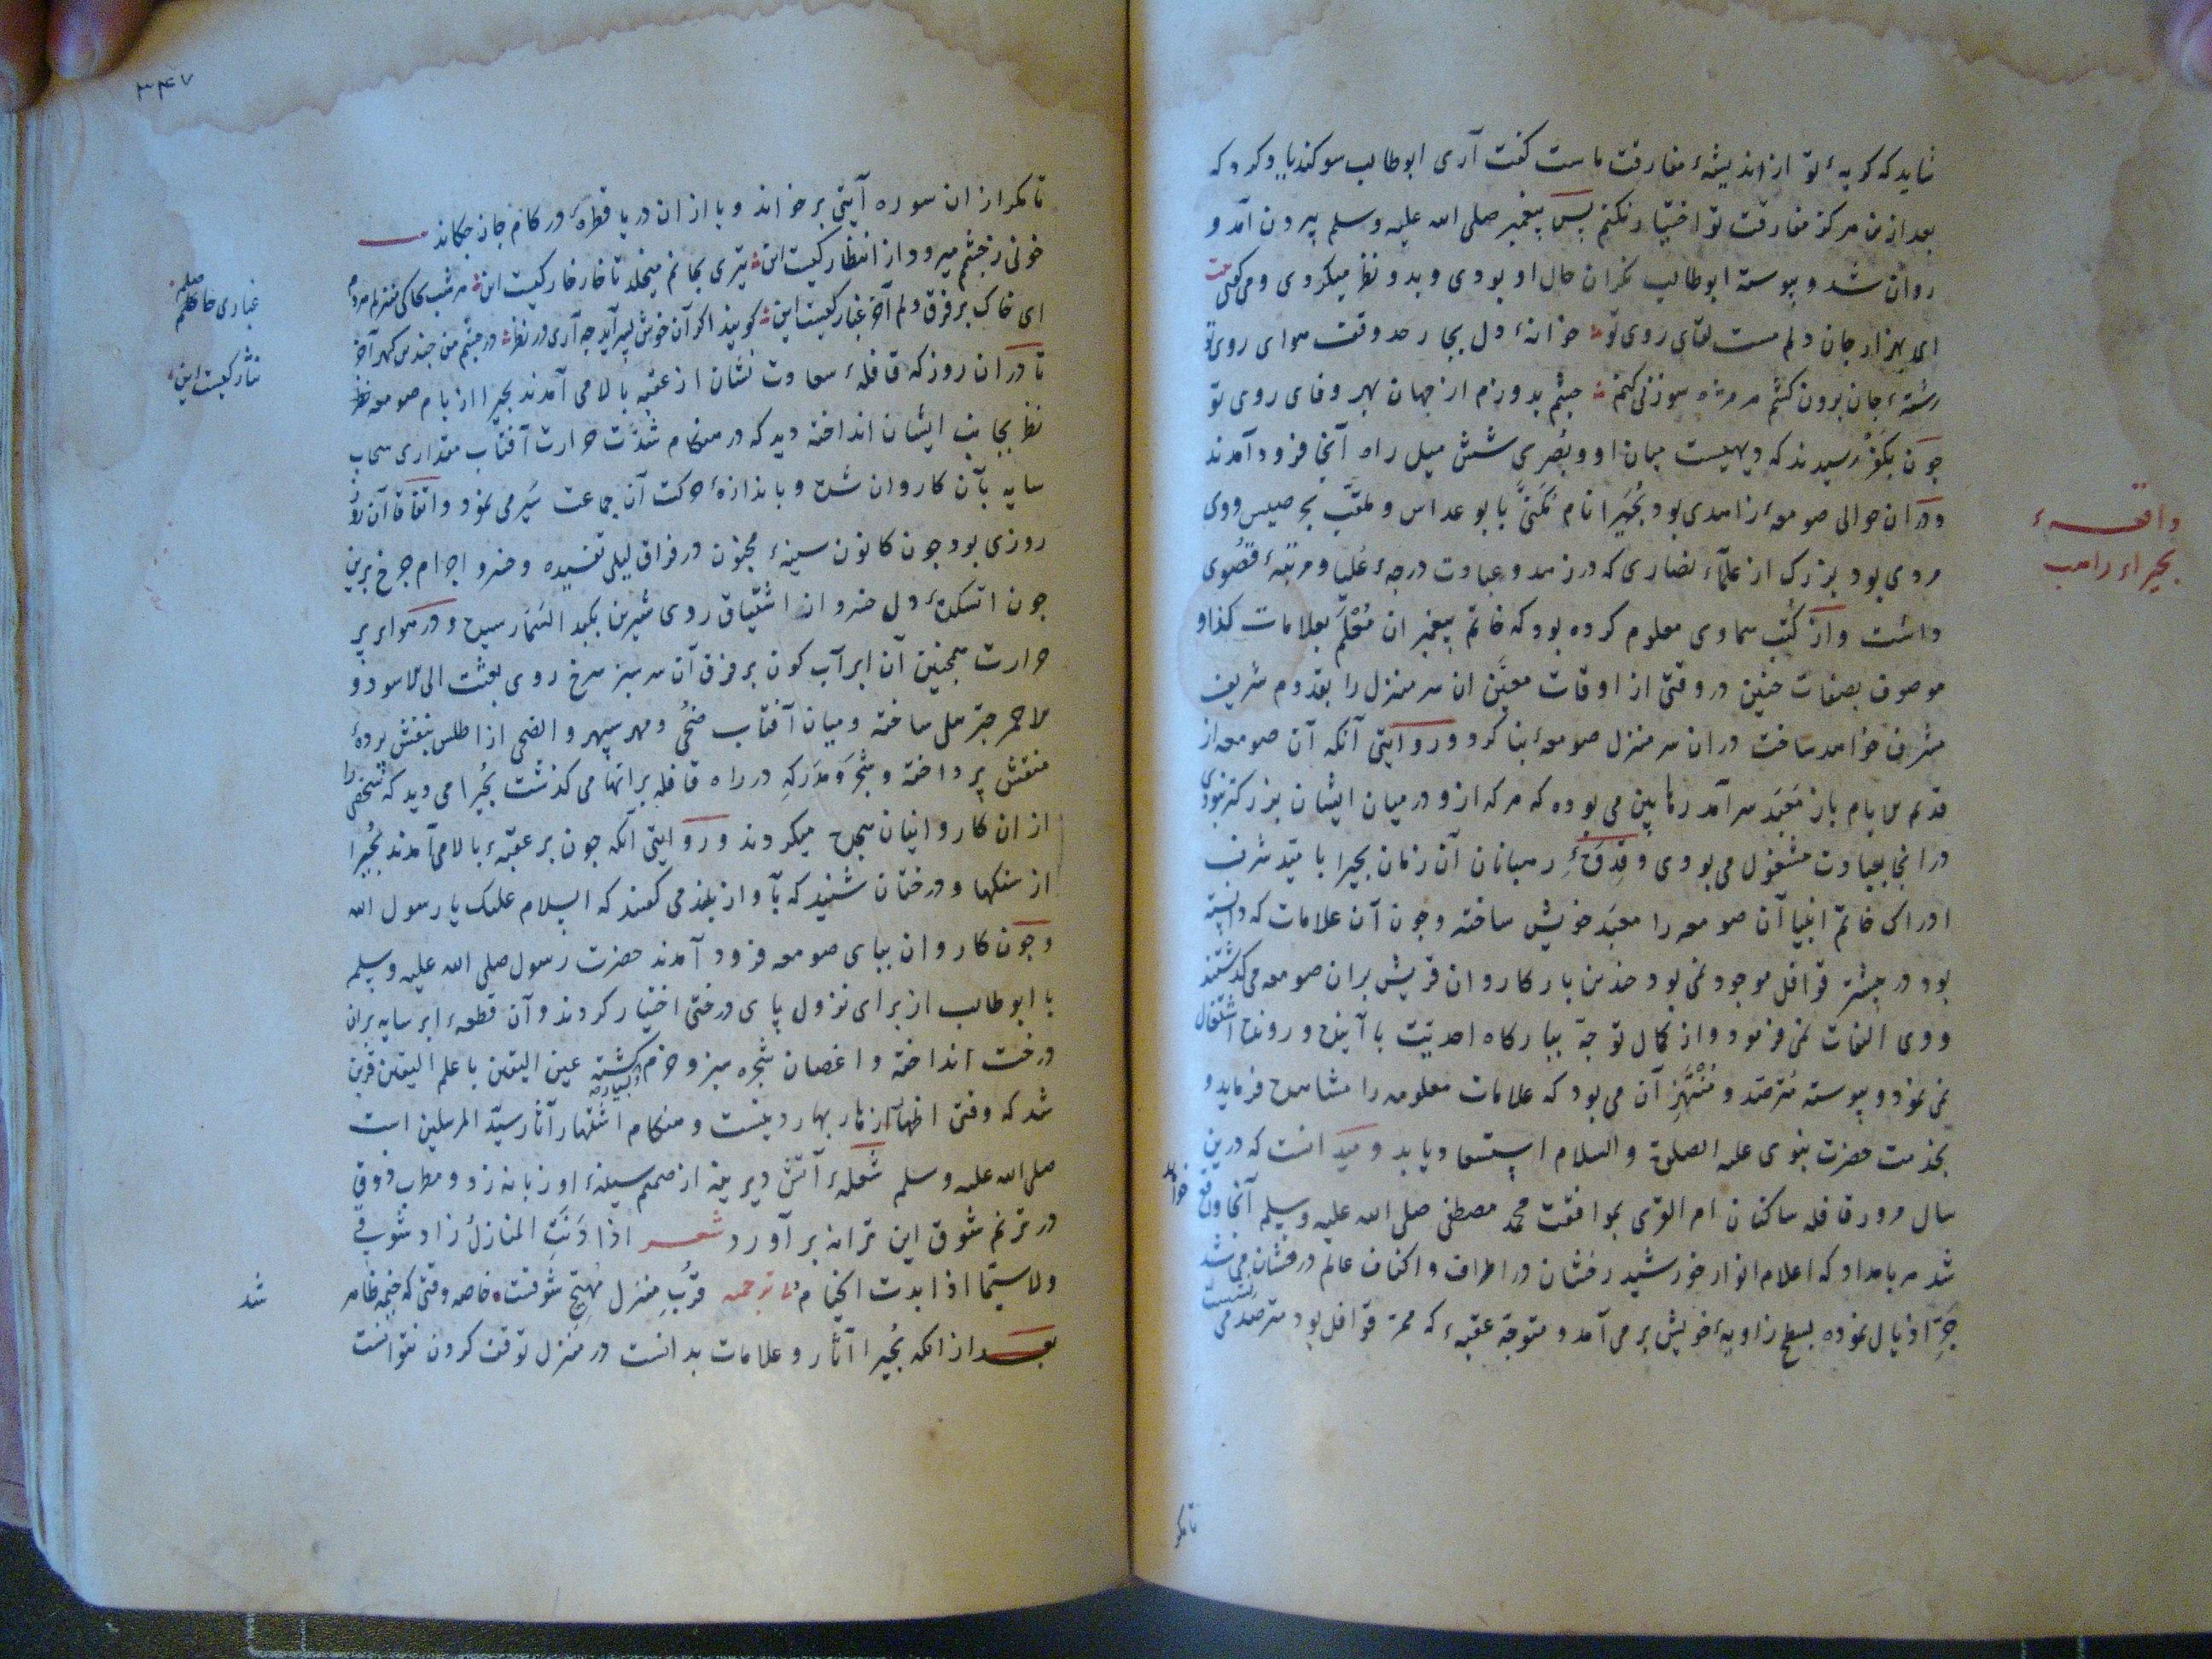 شاید که کریهٔ تو از اندیشهٔ مفارقت ماست کفت آری ابوطالب سوکند یاد کرد که
بعد ازین هرکز مفارقت تو اختیار نکنم پس پیغمبر صلی الله علیه وسلم بیرون آمد و
روان شد و پیوسته ابوطالب نکران حال او بودی و بدو نظر میکردی و می کفتی
ای هزار جان و دلم مست لقای روی تو خزانهٔ دل بچار حد وقت هوای روی تو
رشتهٔ جان برون کشم هر مژه سوزنی کنم چشم بدوزم از جهان بهر وفای روی تو
چون بکفر رسیدند که دیهیست میان او و بصری شش میل راه آنجا فرود آمدند
ودران حوالی صومعهٔ زاهدی بود بحیرا نام مکنی بابو عداس و ملقب بجرصیس و وی
واقعهٔ
بحیراء راهب
مردی بود بزرک از علماء نصاری که در زهد و عبادت درجهٔ علیا و مرتبهٔ قصوی
داشت واز کتب سماوی معلوم کرده بود که خاتم پیغمبران معلم بعلامات کذا و
موصوف بصفات چنین در وقتی از اوقات معین ان سر منزل را بقدوم شریف
مشرف خواهد ساخت دران سر منزل صومعهٔ بنا کرد و روایتی آنکه آن صومعه از
قدیم الایام باز معبد سرآمد رهابین می بوده که هر که ازو درمیان ایشان بزرکتر نبودی
درانجا بعبادت مشغول می بودی و قدوهٔ رهبانان آن زمان بحیرا بامید شرف
ادراک خاتم انبیا آن صومعه را معبد خویش ساخته و چون آن علامات که دانسته
بود در بیشتر قوافل موجود نمی بود چندین بار کاروان قریش بران صومعه می کذشتند
و وی التفات نمی فرمود و از کمال توجه ببارکاه احدیت با آینده و رونده اشتغال
نمی نمود و پیوسته مترصد و منتهز آن می بود که علامات معلومه را مشاهده فرماید و
بخدمت حضرت نبوی علیه الصلوة والسلام استسعاد یابد و میدانست که درین
سال مرور قافله ساکنان ام القری بموافقت محمد مصطفی صلی الله علیه وسلم آنجا واقع خواهد
شد هر بامداد که اعلام انوار خورشید رخشان در اطراف و اکناف عالم درفشان می شد
جر اذیال نموده بسطح زاویهٔ خویش برمی آمد و متوجه عقبهٔ که ممر قوافل بود مترصد می نشست
تا مکر
۳۴۷
تا مکر ازان سوره آیتی برخواند و یا ازان دریا قطرهٔ در کام جان چکاند
خونی ز چشمم میرود از انتظار کیست این تیری بجانم میخلد تا خار خار کیست این هر شب بخاکی منزلم هر دم
غباری حاصلم
ای خاک بر فرق دلم آخر غبار کیست این کویند اکر آن خوش پسر آید چه آری در نظر در چشم من چندین کهر آخر
نثار کیست این
تا دران روز که قافلهٔ سعادت نشان از عقبه بالا می آمدند بحیرا از بام صومعه نظر
نظر بجانب ایشان انداخته دید که در هنکام شدت حرارت آفتاب مقداری سحاب
سایه بآن کاروان شده و باندازهٔ حرکت آن جماعت سیر می نمود و اتفاقا آن روز
روزی بود چون کانون سینهٔ مجنون در فراق لیلی تفسیده و خسرو اجرام چرخ برین
چون اتشکدهٔ دل خسرو از اشتیاق روی شیرین بکبد السما رسیده و در هوا پر
حرارت همچنین آن ابر آب کون بر فرق آن سر سبز سرخ روی بعثت الی الاسود و
الاحمر چتر مثل ساخته و میان آفتاب ضحی و مهر سپهر والضحی از اطلس بنفش پردهٔ
منقش پرداخته و شجر و مدر که در راه قافله برانها می کذشت بحیرا می دید که شخصی را
ازان کاروانیان سجده میکردند و روایتی آنکه چون بر عقبه بالا می آمدند بحیرا
از سنکها و درختان شنید که بآواز بلند می کفتند که السلام علیک یا رسول الله
و چون کاروان بپای صومعه فرود آمدند حضرت رسول صلی الله علیه وسلم
با ابوطالب از برای نزول پای درختی اختیار کردند و آن قطعهٔ ابر سایه بران
درخت انداخته و اغصان شجره سبز و خرم کشته عین الیقین با علم الیقین قرین
شد که وقتی اظهار ازهار بهار دینست و هنکام اشتهار آثار سید المرسلین است
صلی الله علیه وسلم شعلهٔ آتش دیرینه از صمیم سینهٔ او زبانه زد و مطرب ذوق
در ترنم شوق این ترانه برآورد شعر اذا دنت المنازل زاد شوقی
ولاسیما اذا بدت الخیام ترجمه قرب منزل مهیج شوقست خاصه وقتی که خیمه ظاهر
شد
بعد ازانکه بحیرا آثار و علامات بدانست در منزل توقف کردن نتوانست